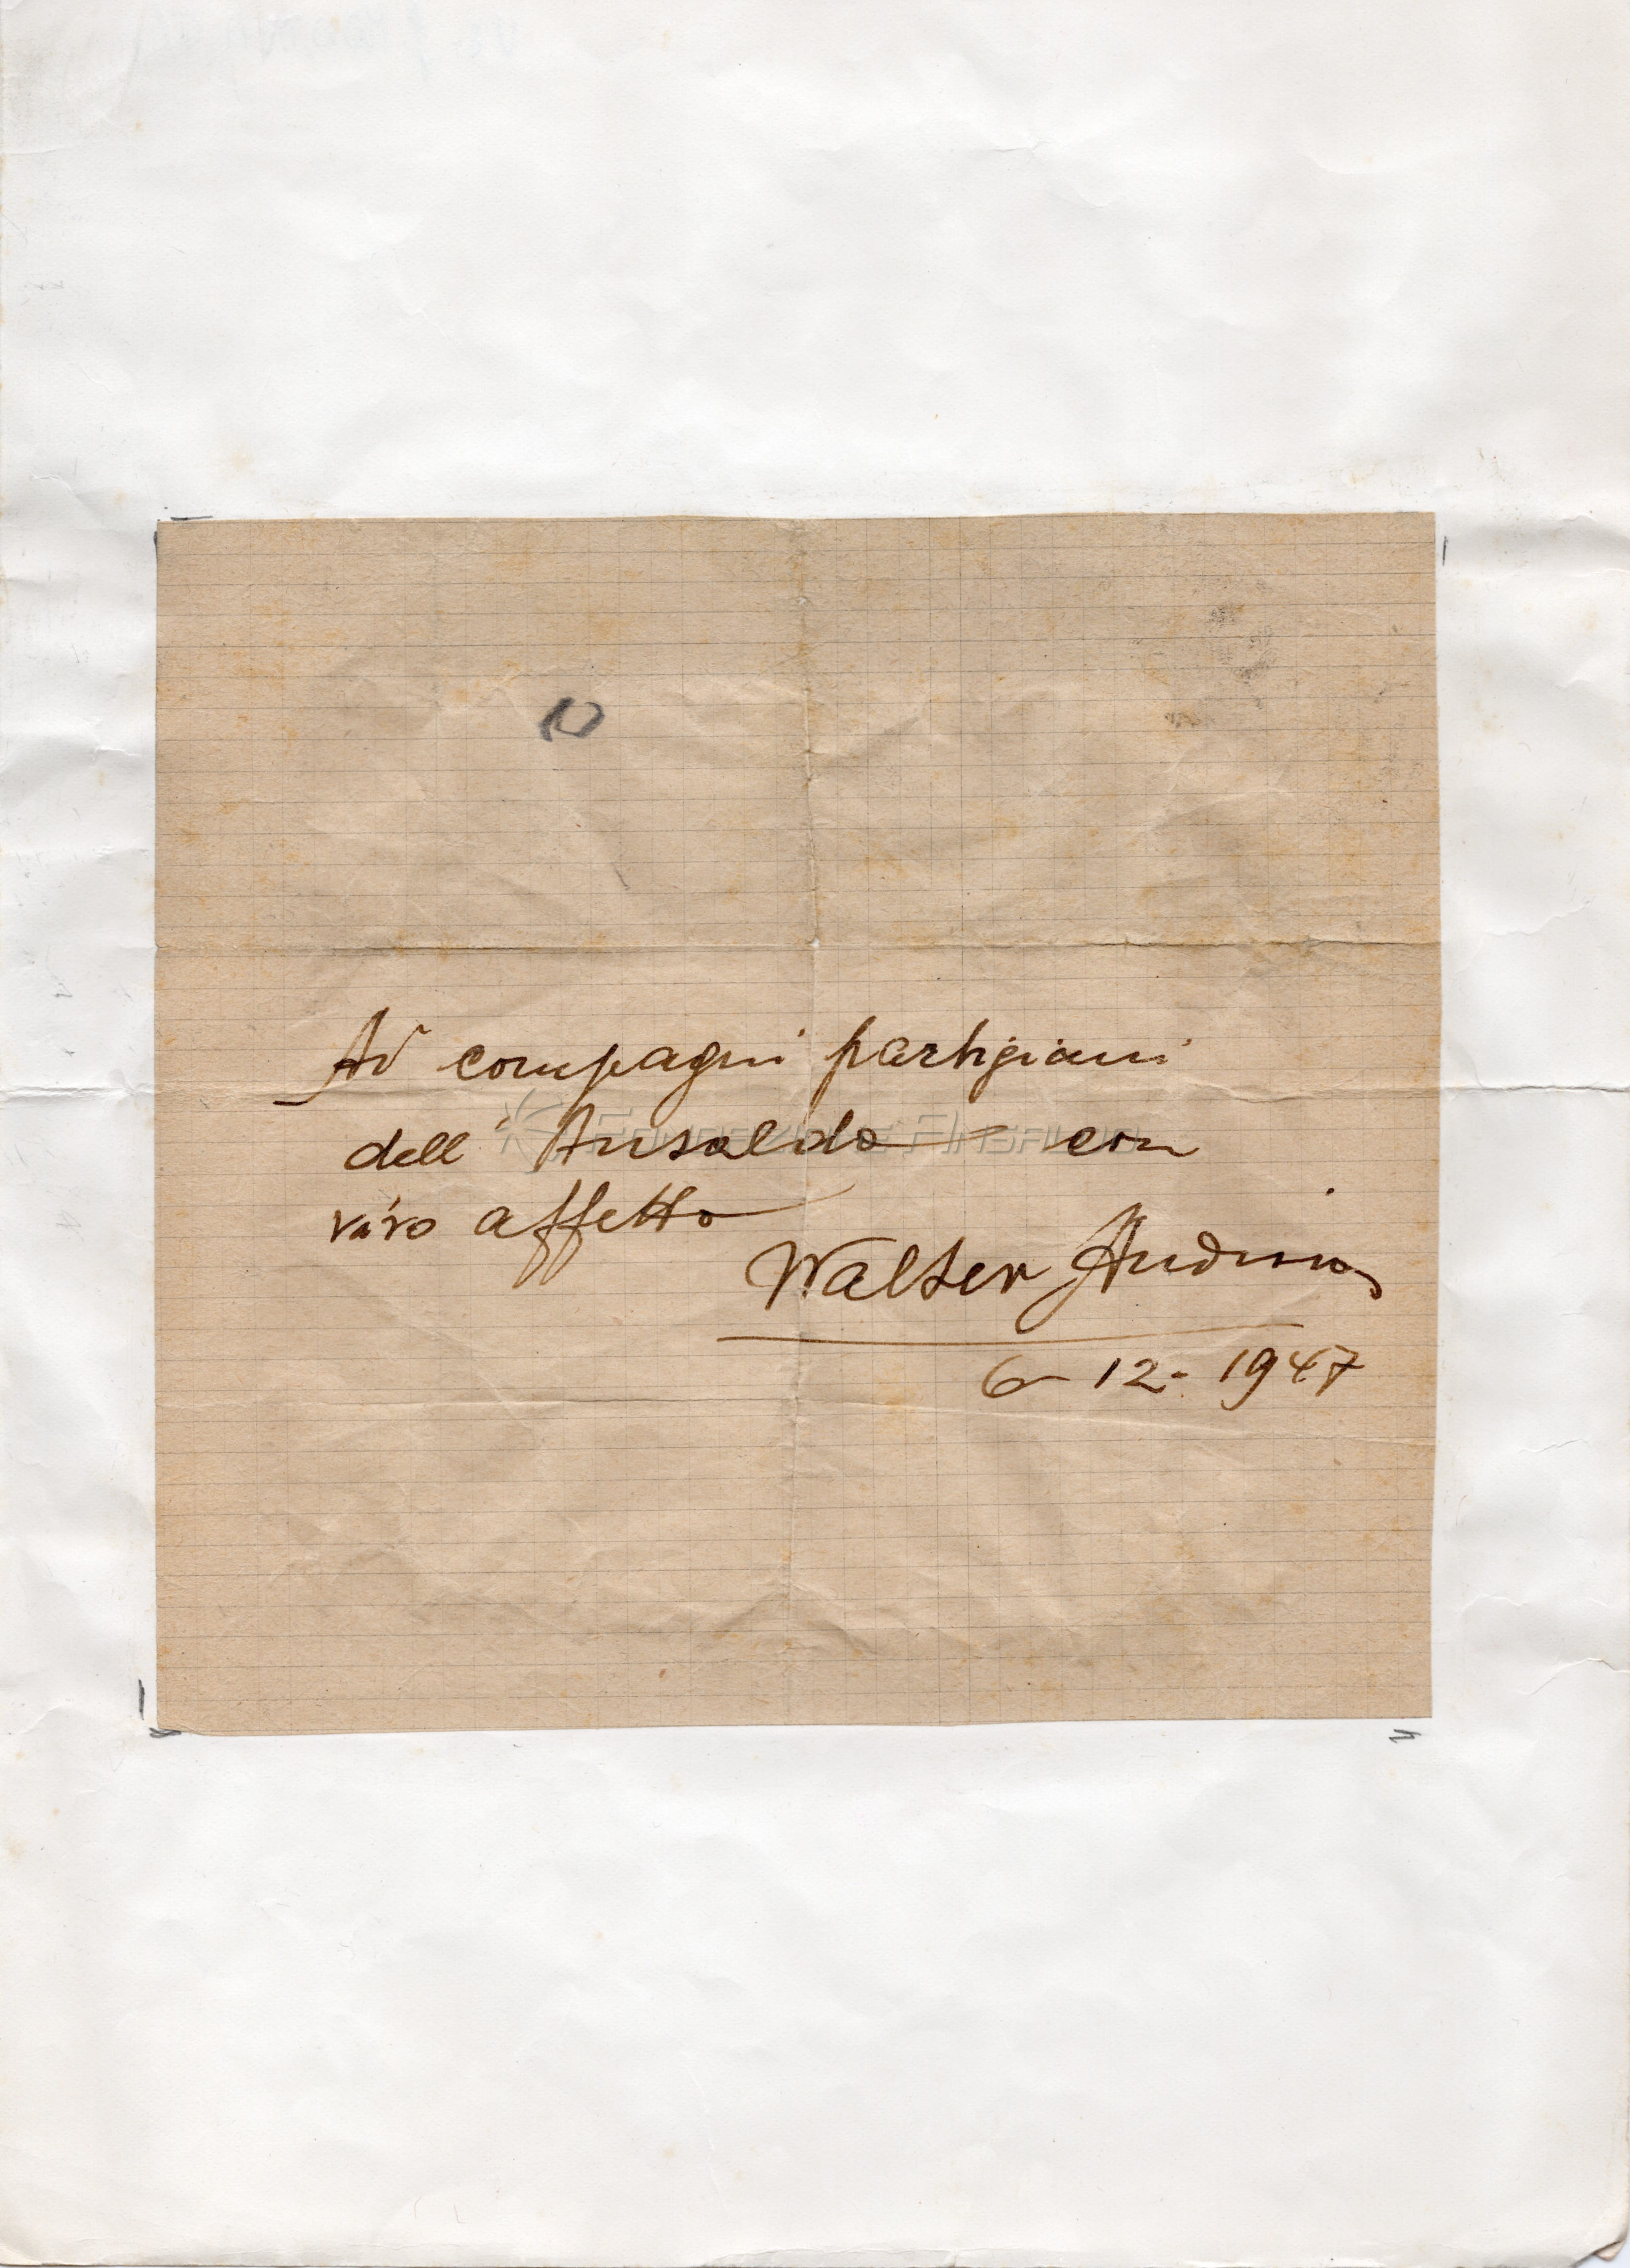 Ai compagni partigiani
dell'Ansaldo con
vivo affetto
Walter Audisio
6-12-1947
FONDAZIONE ANSALDO